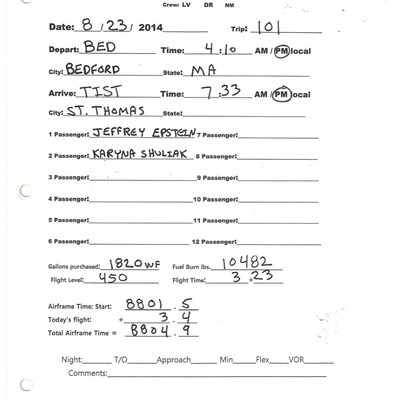 Crew: LV DR NM
Date: 8 / 23 / 2014 Trip: 101
Depart: BED Time: 4:10 AM / PM local
City: BEDFORD State: MA
Arrive: TIST Time: 7:33 AM / PM local
City: ST. THOMAS State:
1 Passenger: JEFFREY EPSTEIN 7 Passenger:
2 Passenger: KARYNA SHULIAK 8 Passenger:
3 Passenger: 9 Passenger:
4 Passenger: 10 Passenger:
5 Passenger: 11 Passenger:
6 Passenger: 12 Passenger:
Gallons purchased: 1820WF Fuel Burn lbs. 10482
Flight Level: 450 Flight Time: 3+23
Airframe Time: Start: 8801.5
Today's flight: + 3.4
Total Airframe Time = 8804.9
Night: T/O Approach Min Flex VOR
Comments: